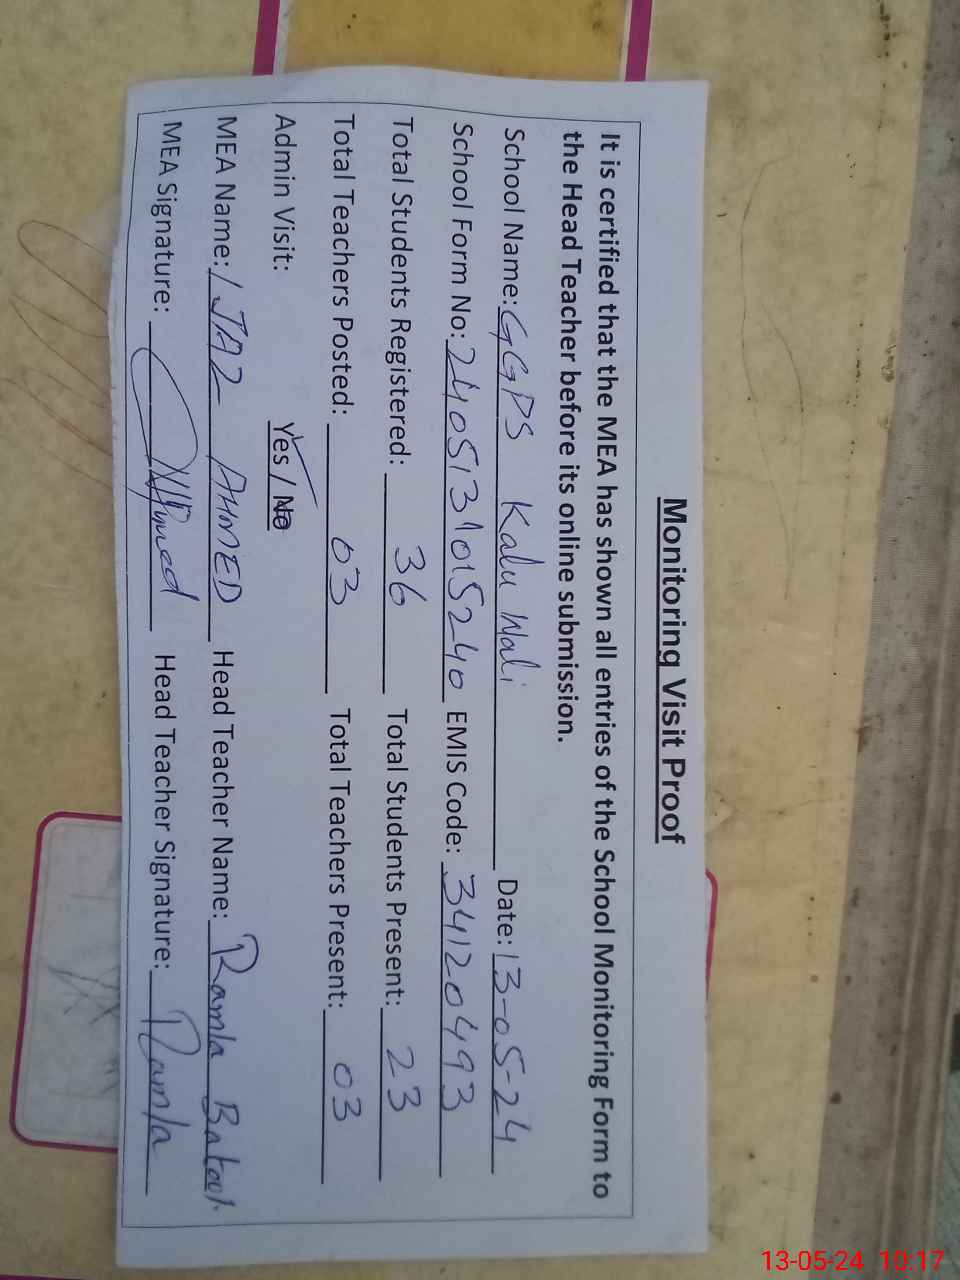 Monitoring Visit Proof
It is certified that the MEA has shown all entries of the School Monitoring Form to
the Head Teacher before its online submission.
School Name: GGPS Kalu Wali Date: 13-05-24
School Form No: 2405131015240 EMIS Code: 34120493
Total Students Registered: 36 Total Students Present: 23
Total Teachers Posted: 03 Total Teachers Present: 03
Admin Visit: Yes / No
MEA Name: IJAZ AHMED Head Teacher Name: Ramla Batool
MEA Signature: Ahmed Head Teacher Signature: Ramla
13-05-24 10:17